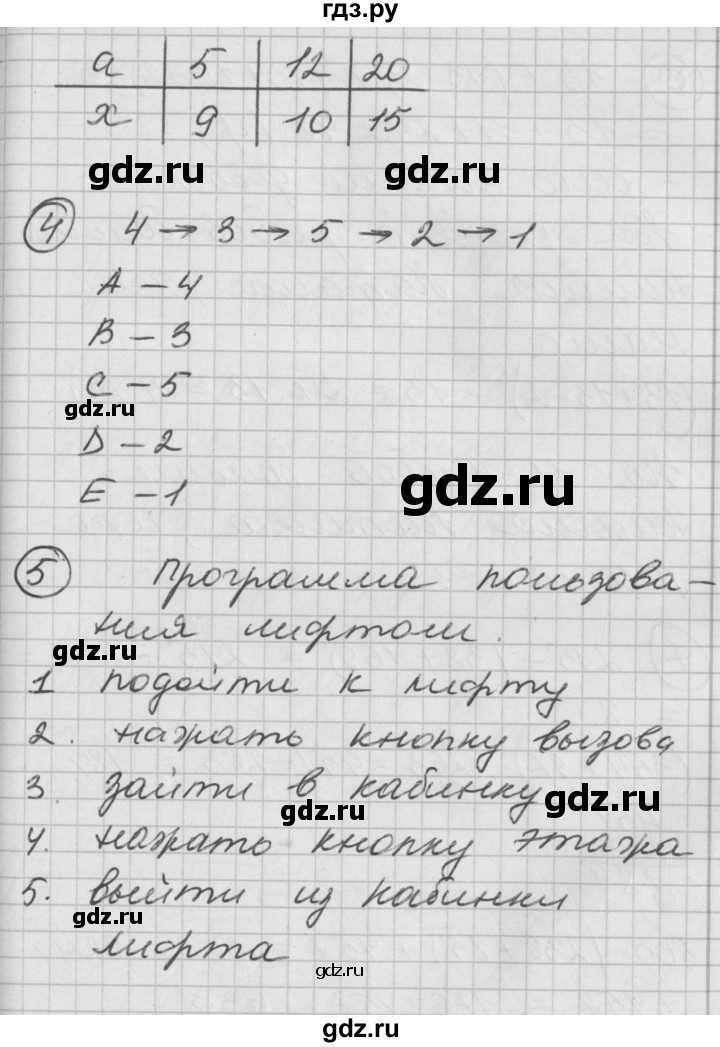 гдз.ру
a | 5 | 12 | 20
x | 9 | 10 | 15
gdz.ru gdz.ru
④ 4 → 3 → 5 → 2 → 1
A – 4
B – 3
C – 5
gdz.ru
D – 2
gdz.ru
E – 1
⑤ Программа пользова–
ния лифтом.
gdz.ru
1 подойти к лифту
2. нажать кнопку вызова
3. зайти в кабинку
gdz.ru gdz.ru
4. нажать кнопку этажа
5. выйти из кабинки
gdz.ru
лифта
gdz.ru
gdz.ru